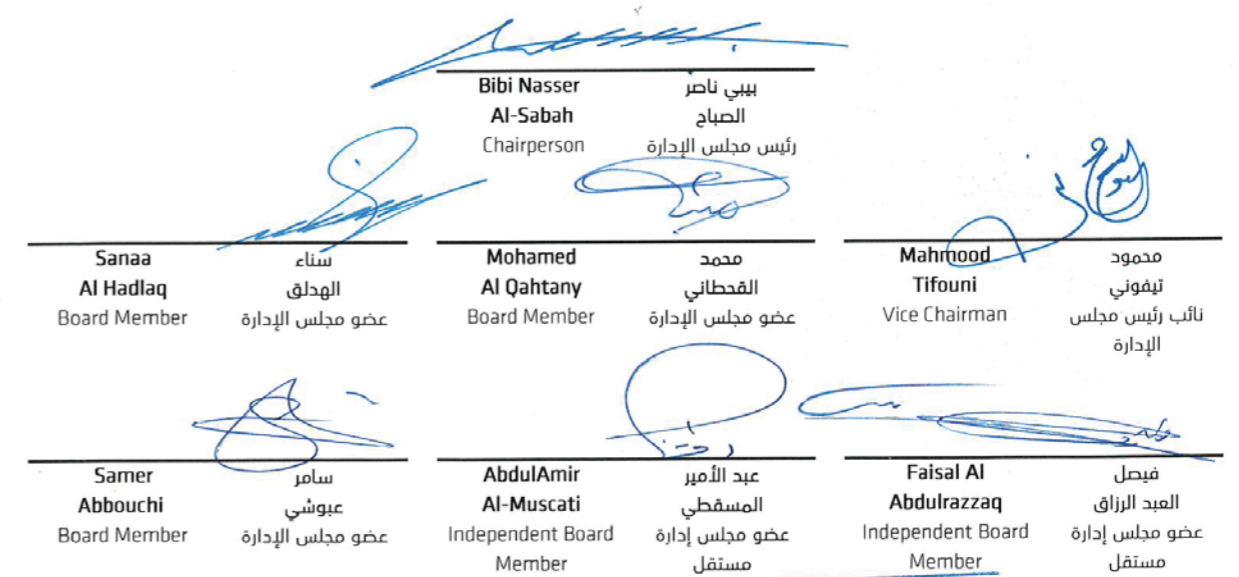 Bibi Nasser
Al-Sabah
Chairperson
بيبي ناصر
الصباح
رئيس مجلس الإدارة
Sanaa
Al Hadlaq
Board Member
سناء
الهدلق
عضو مجلس الإدارة
Mohamed
Al Qahtany
Board Member
محمد
القحطاني
عضو مجلس الإدارة
Mahmood
Tifouni
Vice Chairman
محمود
تيفوني
نائب رئيس مجلس
الإدارة
Samer
Abbouchi
Board Member
سامر
عبوشي
عضو مجلس الإدارة
AbdulAmir
Al-Muscati
Independent Board
Member
عبد الأمير
المسقطي
عضو مجلس إدارة
مستقل
Faisal Al
Abdulrazzaq
Independent Board
Member
فيصل
العبد الرزاق
عضو مجلس إدارة
مستقل